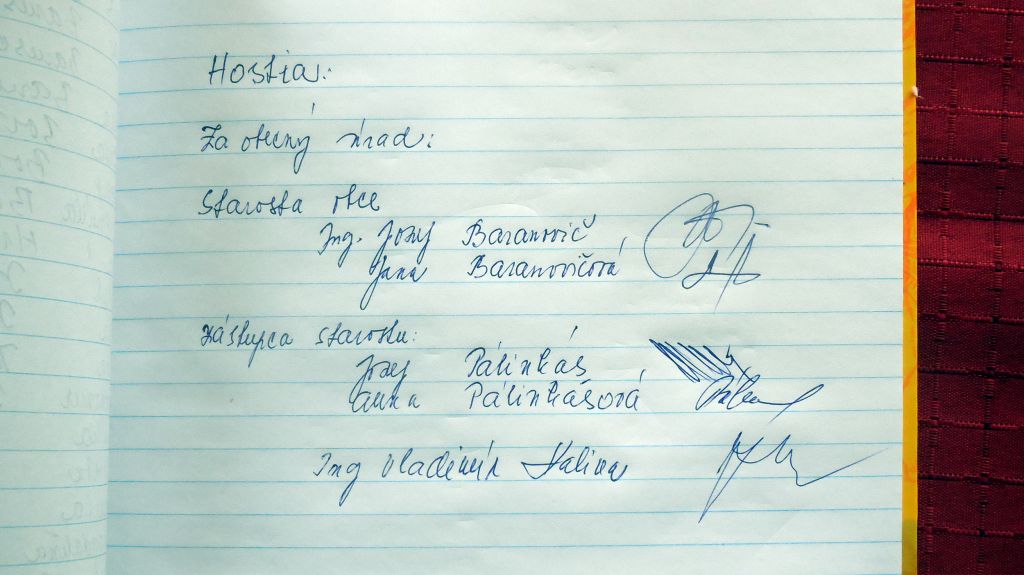 Hostia:
Za obecný úrad:
Starosta obce
Ing. Jozef Baranovič
Jana Baranovičová
Zástupca starostu:
Jozef Pálinkás
Anna Pálinkásová
Ing Vladimír Kalina